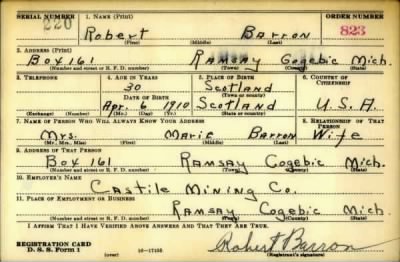 SERIAL NUMBER 1. NAME (Print) ORDER NUMBER
220 Robert Barron 823
(First) (Middle) (Last)
2. ADDRESS (Print)
Box 161 Ramsay Gogebic Mich.
(Number and street or R. F. D. number) (Town) (County) (State)
3. TELEPHONE 4. AGE IN YEARS 5. PLACE OF BIRTH 6. COUNTRY OF CITIZENSHIP
30 Scotland
DATE OF BIRTH (Town or county)
Apr. 6 1910 Scotland U.S.A.
(Exchange) (Number) (Mo.) (Day) (Yr.) (State or country)
7. NAME OF PERSON WHO WILL ALWAYS KNOW YOUR ADDRESS 8. RELATIONSHIP OF THAT PERSON
Mrs. Marie Barron Wife
(Mr., Mrs., Miss) (First) (Middle) (Last)
9. ADDRESS OF THAT PERSON
Box 161 Ramsay Gogebic Mich.
(Number and street or R. F. D. number) (Town) (County) (State)
10. EMPLOYER'S NAME
Castile Mining Co.
11. PLACE OF EMPLOYMENT OR BUSINESS
Ramsay Gogebic Mich.
(Number and street or R. F. D. number) (Town) (County) (State)
I AFFIRM THAT I HAVE VERIFIED ABOVE ANSWERS AND THAT THEY ARE TRUE.
REGISTRATION CARD
D. S. S. Form 1 (over) 16—17105 Robert Barron
(Registrant's signature)